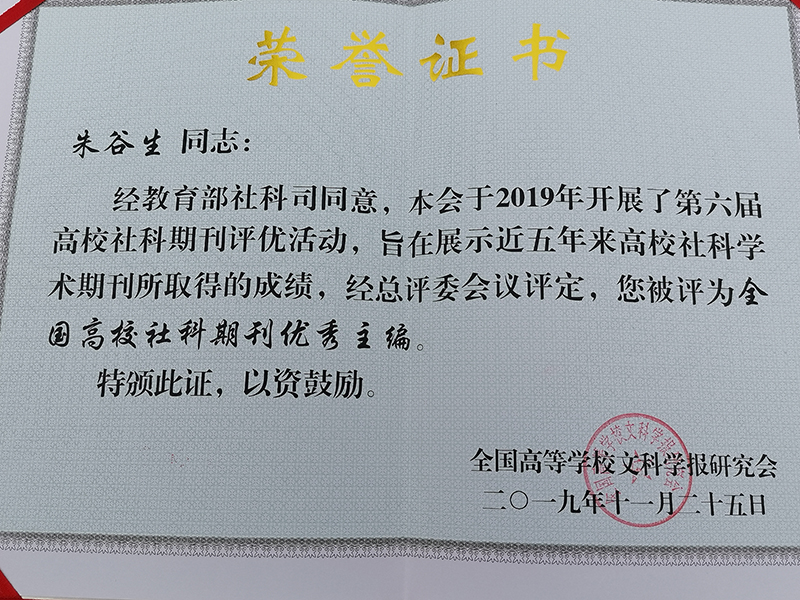 荣誉证书
朱谷生 同志：
经教育部社科司同意，本会于2019年开展了第六届
高校社科期刊评优活动，旨在展示近五年来高校社科学
术期刊所取得的成绩，经总评委会议评定，您被评为全
国高校社科期刊优秀主编。
特颁此证，以资鼓励。
全国高等学校文科学报研究会
二〇一九年十一月二十五日